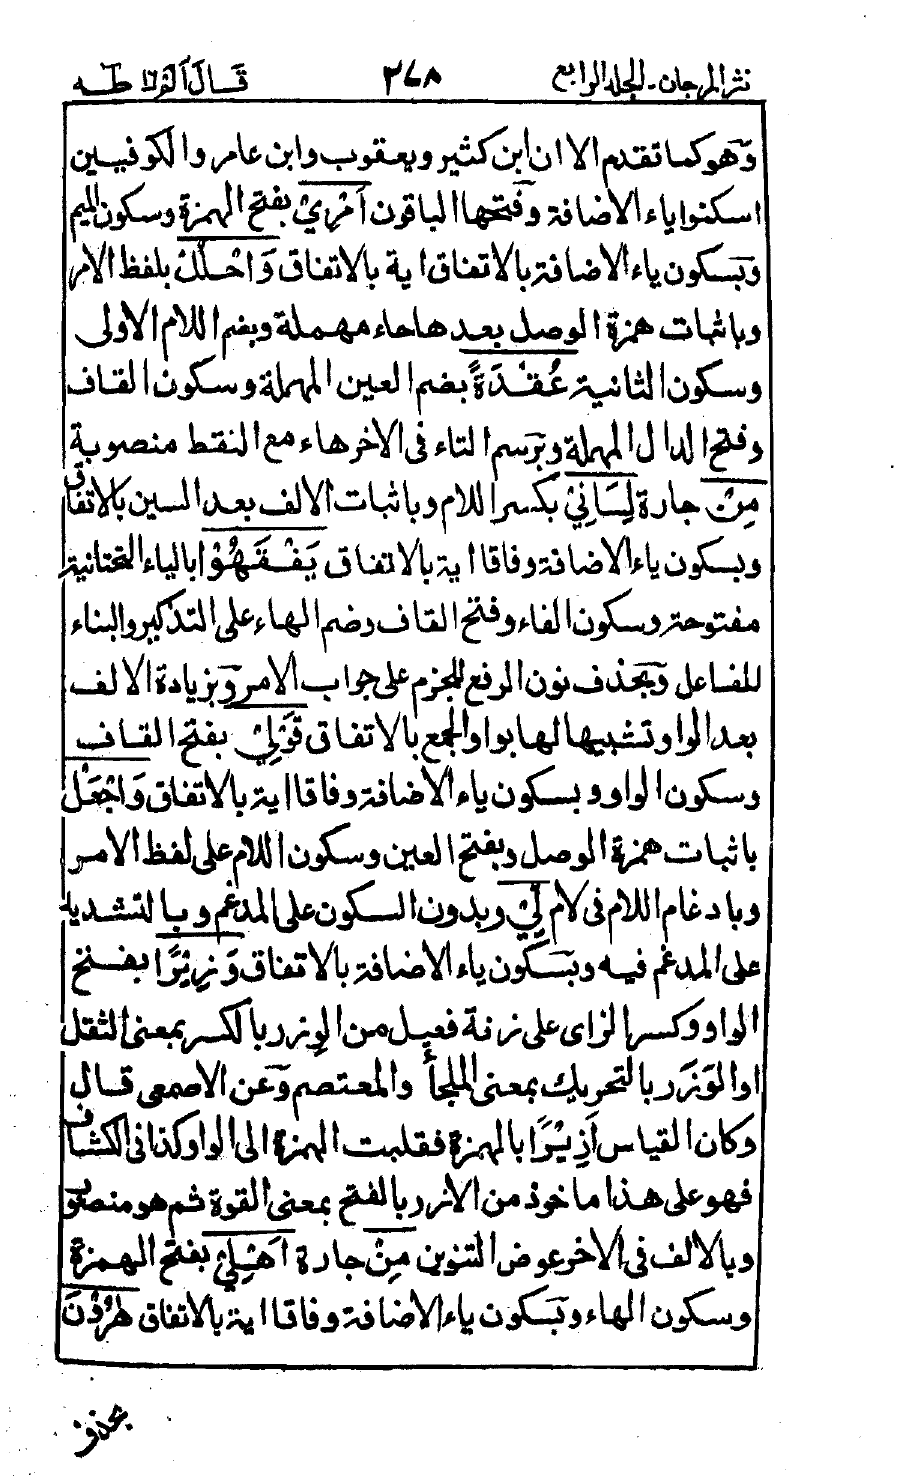 نثر المرجان - الجلد الرابع ٣٤٨ قال الم ١٦ طه
وهو كما تقدم الا ان ابن كثير ويعقوب وابن عامر والكوفيين
اسكنوا ياء الاضافة وفتحها الباقون اَمْرِيْ بفتح الهمزة وسكون الميم
وبسكون ياء الاضافة بالاتفاق اية بالاتفاق وَاحْلُلْ بلفظ الامر
وباثبات همزة الوصل بعدها حاء مهملة وبضم اللام الاولى
وسكون الثانية عُقْدَةً بضم العين المهملة وسكون القاف
وفتح الدال المهملة وبرسم التاء فى الاخر هاء مع النقط منصوبة
مِنْ جارة لِسَانِيْ بكسر اللام وباثبات الالف بعد السين بالاتفاق
وبسكون ياء الاضافة وفاقا اية بالاتفاق يَفْقَهُوْا بالياء التحتانية
مفتوحة وسكون الفاء وفتح القاف وضم الهاء على التذكير والبناء
للفاعل وبحذف نون الرفع للجزم على جواب الامر وبزيادة الالف
بعد الواو تشبيها لها بواو الجمع بالاتفاق قَوْلِيْ بفتح القاف
وسكون الواو وبسكون ياء الاضافة وفاقا اية بالاتفاق وَاجْعَلْ
باثبات همزة الوصل وبفتح العين وسكون اللام على لفظ الامر
وبادغام اللام فى لام لِيْ وبدون السكون على المدغم وبالتشديد
على المدغم فيه وبسكون ياء الاضافة بالاتفاق وَزِيْرًا بفتح
الواو وكسر الزاى على زنة فعيل من الوِزر بالكسر بمعنى الثقل
او الوَزَر بالتحريك بمعنى الملجأ والمعتصم وعن الاصمعى قال
وكان القياس اَزِيْرًا بالهمزة فقلبت الهمزة الى الواو كذا فى الكشاف
فهو على هذا ماخوذ من الازر بالفتح بمعنى القوة ثم هو منصوب
وبالالف فى الاخر عوض التنوين مِنْ جارة اَهْلِيْ بفتح الهمزة
وسكون الهاء وبسكون ياء الاضافة وفاقا اية بالاتفاق هٰرُوْنَ
بحذف